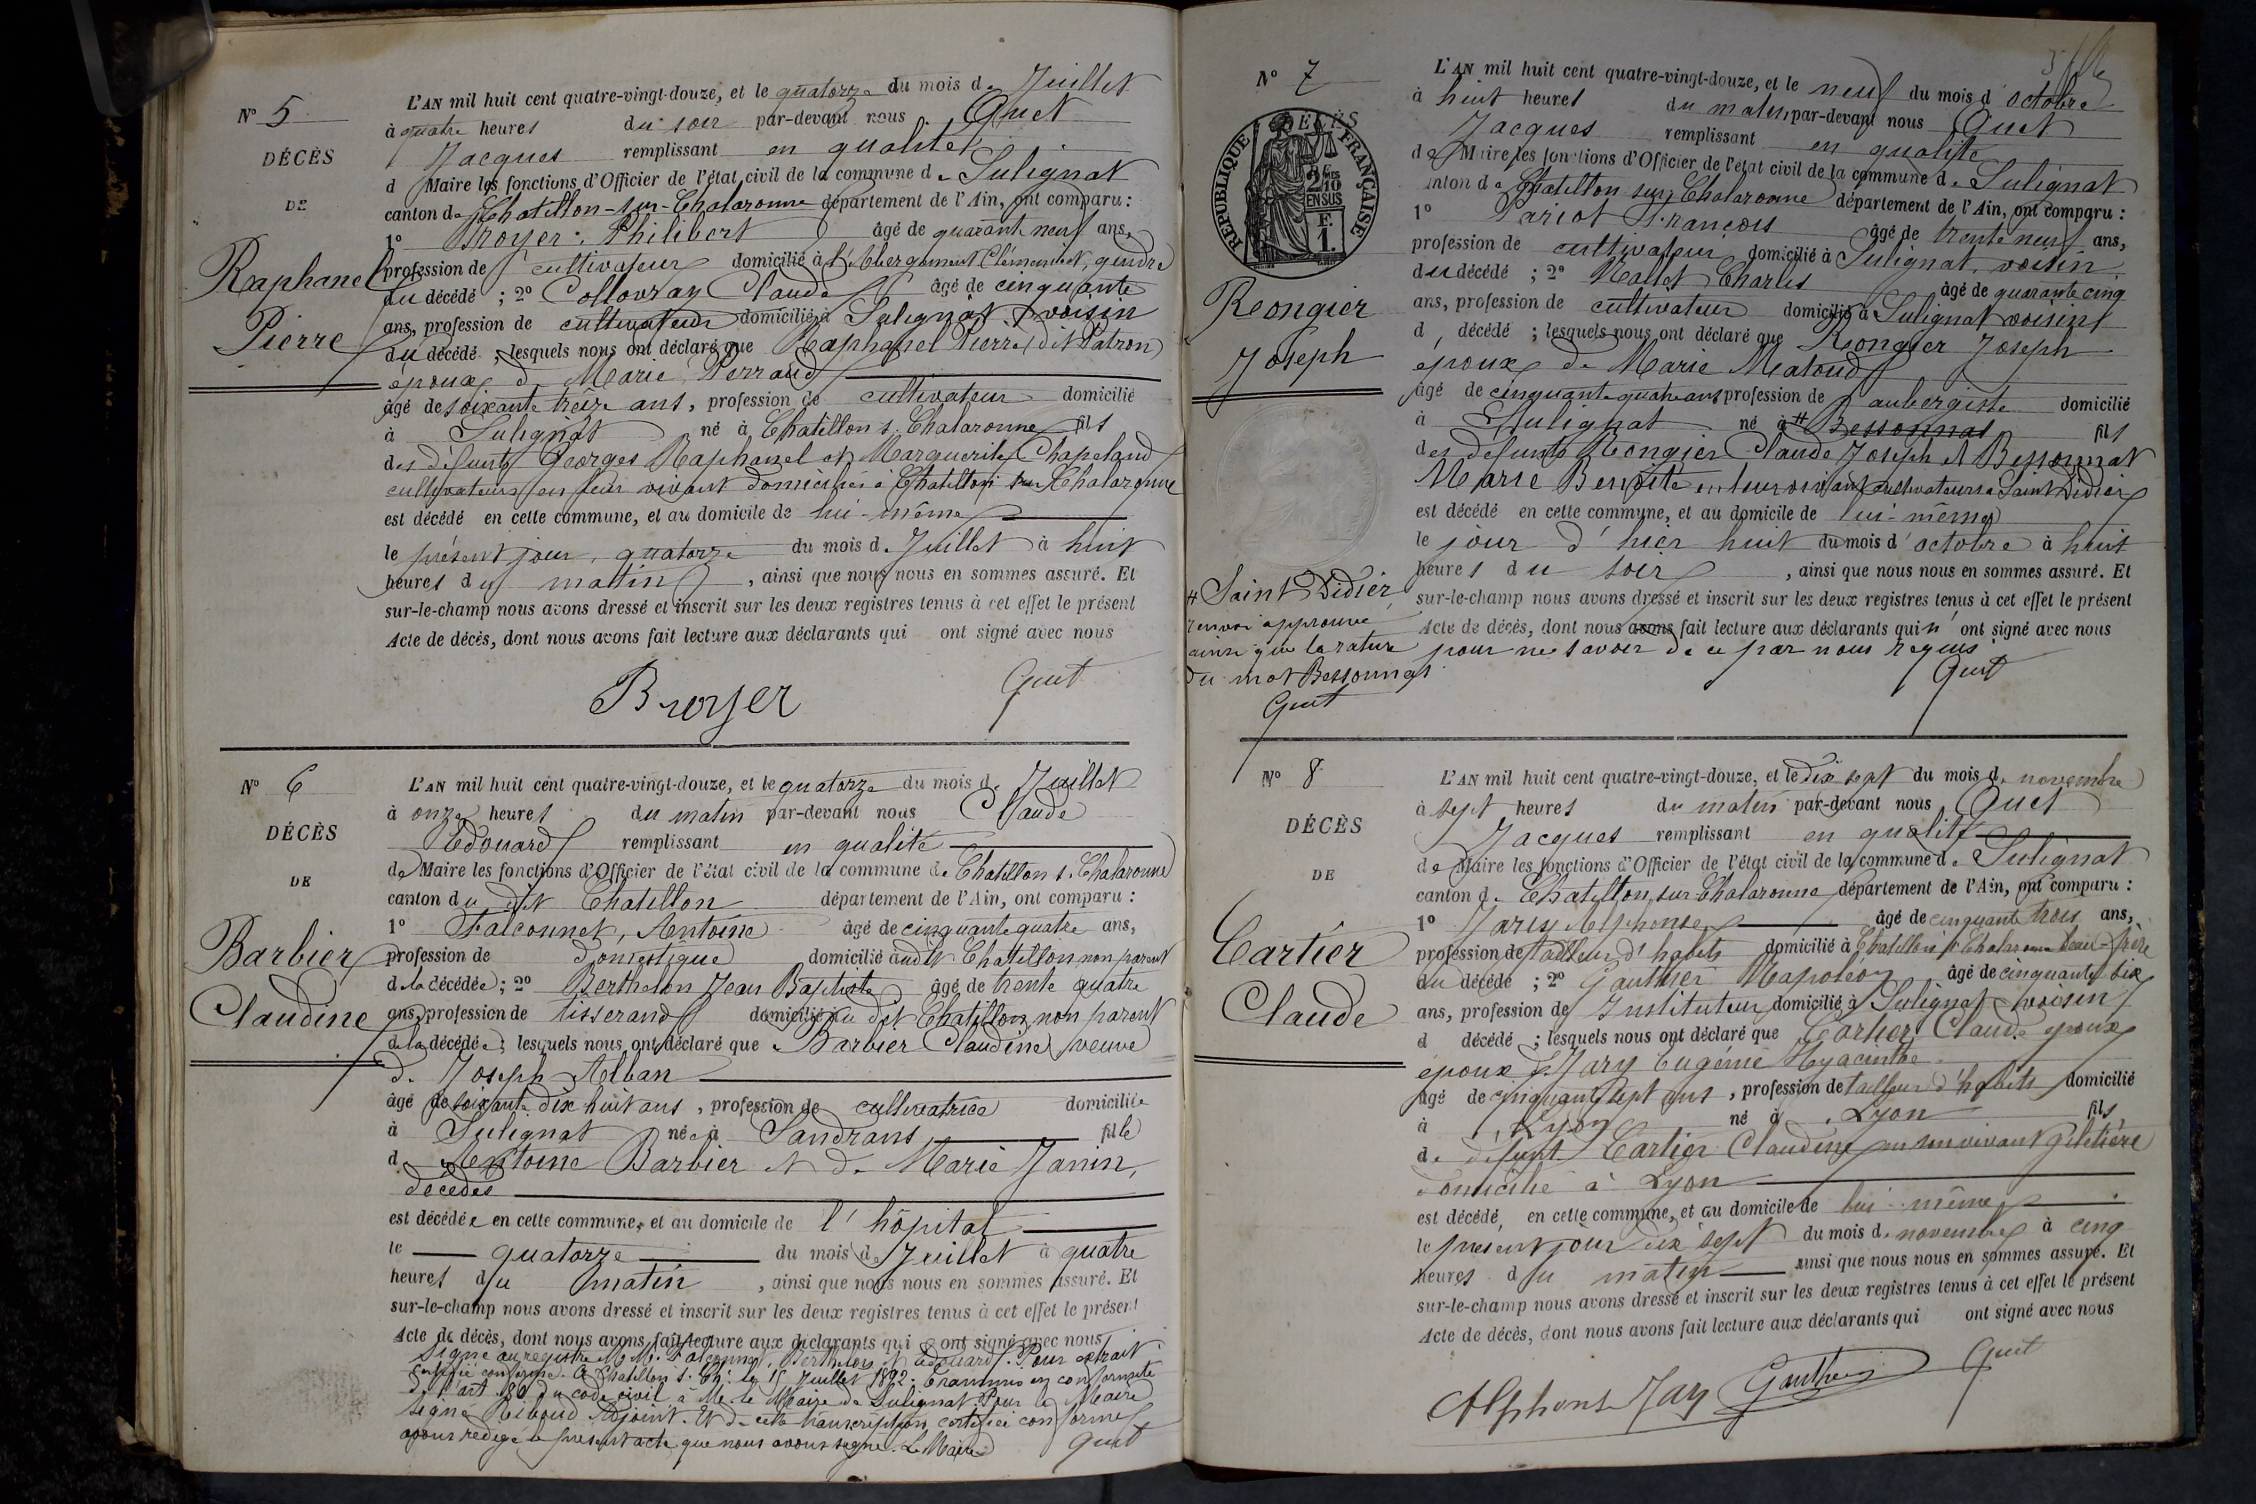 N° 5
DÉCÈS
DE
Raphanel
Pierre
L'AN mil huit cent quatre-vingt-douze, et le quatorze du mois de Juillet
à quatre heures du soir par-devant nous Quet
Jacques remplissant en qualité
d Maire les fonctions d'Officier de l'état civil de la commune de Sulignat
canton de Chatillon-sur-Chalaronne département de l'Ain, ont comparu :
1° Broyer Philibert âgé de quarante neuf ans,
profession de cultivateur domicilié à l'Abergement Clémenciat, gendre
du décédé ; 2° Collovray Claude âgé de cinquante
ans, profession de cultivateur domicilié à Sulignat, voisin
du décédé ; lesquels nous ont déclaré que Raphanel Pierre (dit Patron)
époux de Marie Perraud
âgé de soixante treize ans, profession de cultivateur domicilié
à Sulignat né à Chatillon s. Chalaronne fils
des défunts Georges Raphanel et Marguerite Chapeland
cultivateurs en leur vivant domiciliés à Chatillon sur Chalaronne
est décédé en cette commune, et au domicile de lui-même
le présent jour, quatorze du mois de Juillet à huit
heures du matin, ainsi que nous nous en sommes assuré. Et
sur-le-champ nous avons dressé et inscrit sur les deux registres tenus à cet effet le présent
Acte de décès, dont nous avons fait lecture aux déclarants qui ont signé avec nous
Broyer Quet
N° 6
DÉCÈS
DE
Barbier
Claudine
L'AN mil huit cent quatre-vingt-douze, et le quatorze du mois de Juillet
à onze heures du matin par-devant nous Claude
Edouard remplissant en qualité
de Maire les fonctions d'Officier de l'état civil de la commune de Chatillon s. Chalaronne
canton du dit Chatillon département de l'Ain, ont comparu :
1° Falconnet, Antoine âgé de cinquante quatre ans,
profession de domestique domicilié audit Chatillon non parent
de la décédée ; 2° Berthelon Jean Baptiste âgé de trente quatre
ans, profession de tisserand domicilié au dit Chatillon, non parent
de la décédée ; lesquels nous ont déclaré que Barbier Claudine veuve
de Joseph Alban
âgé de soixante dix huit ans, profession de cultivatrice domiciliée
à Sulignat née à Sandrans fille
d. Antoine Barbier et de Marie Janin,
décédés
est décédée en cette commune, et au domicile de l'hôpital
le quatorze du mois de Juillet à quatre
heures du matin, ainsi que nous nous en sommes assuré. Et
sur-le-champ nous avons dressé et inscrit sur les deux registres tenus à cet effet le présent
Acte de décès, dont nous avons fait lecture aux déclarants qui ont signé avec nous
Signé au registre M.M. Falconnet, Berthelon et Edouard. Pour extrait
certifié conforme. A Chatillon s. Ch. le 15 Juillet 1892. Transmis en conformité
de l'art. 80 du code civil à Mr le Maire de Sulignat. Pour le Maire
signé Riboud Adjoint. Et de cette transcription certifiée conforme
avons rédigé le présent acte que nous avons signé. Le Maire Quet
N° 7
DÉCÈS
RÉPUBLIQUE FRANÇAISE
2/10 EN SUS
F. 1
Rongier
Joseph
# Saint Didier
renvoi approuvé
ainsi que la rature
du mot Bessonnat
Quet
L'AN mil huit cent quatre-vingt-douze, et le neuf du mois d'octobre
à huit heures du matin, par-devant nous Quet
Jacques remplissant en qualité
de Maire les fonctions d'Officier de l'état civil de la commune de Sulignat
canton de Chatillon sur Chalaronne département de l'Ain, ont comparu :
1° Pariot François âgé de trente neuf ans,
profession de cultivateur domicilié à Sulignat, voisin
du décédé ; 2° Mallet Charles âgé de quarante cinq
ans, profession de cultivateur domicilié à Sulignat voisins
d décédé ; lesquels nous ont déclaré que Rongier Joseph
époux de Marie Matoud
âgé de cinquante quatre ans profession de aubergiste domicilié
à Sulignat né à # Bessonnat fils
des défunts Rongier Claude Joseph et Bessonnat
Marie Benoite en leur vivant cultivateurs à Saint Didier
est décédé en cette commune, et au domicile de lui-même
le jour d'hier huit du mois d'octobre à huit
heures du soir, ainsi que nous nous en sommes assuré. Et
sur-le-champ nous avons dressé et inscrit sur les deux registres tenus à cet effet le présent
Acte de décès, dont nous avons fait lecture aux déclarants qui n'ont signé avec nous
pour ne savoir de ce par nous requis
Quet
N° 8
DÉCÈS
DE
Cartier
Claude
L'AN mil huit cent quatre-vingt-douze, et le dix sept du mois de novembre
à sept heures du matin par-devant nous Quet
Jacques remplissant en qualité
de Maire les fonctions d'Officier de l'état civil de la commune de Sulignat
canton de Chatillon sur Chalaronne département de l'Ain, ont comparu :
1° Jary Alphonse âgé de cinquante trois ans,
profession de tailleur d'habits domicilié à Chatillon s Chalaronne beau-frère
du décédé ; 2° Gauthier Napoléon âgé de cinquante six
ans, profession de Instituteur domicilié à Sulignat voisin
d décédé ; lesquels nous ont déclaré que Cartier Claude époux
époux d. Jary Eugénie Hyacinthe
âgé de cinquante sept ans, profession de tailleur d'habits domicilié
à Lyon né à Lyon fils
de défunt Cartier Claudine en son vivant giletière
domicilié à Lyon
est décédé, en cette commune, et au domicile de lui-même
le présent jour dix sept du mois de novembre à cinq
heures du matin ainsi que nous nous en sommes assuré. Et
sur-le-champ nous avons dressé et inscrit sur les deux registres tenus à cet effet le présent
Acte de décès, dont nous avons fait lecture aux déclarants qui ont signé avec nous
Alphonse Jary Gauthier Quet